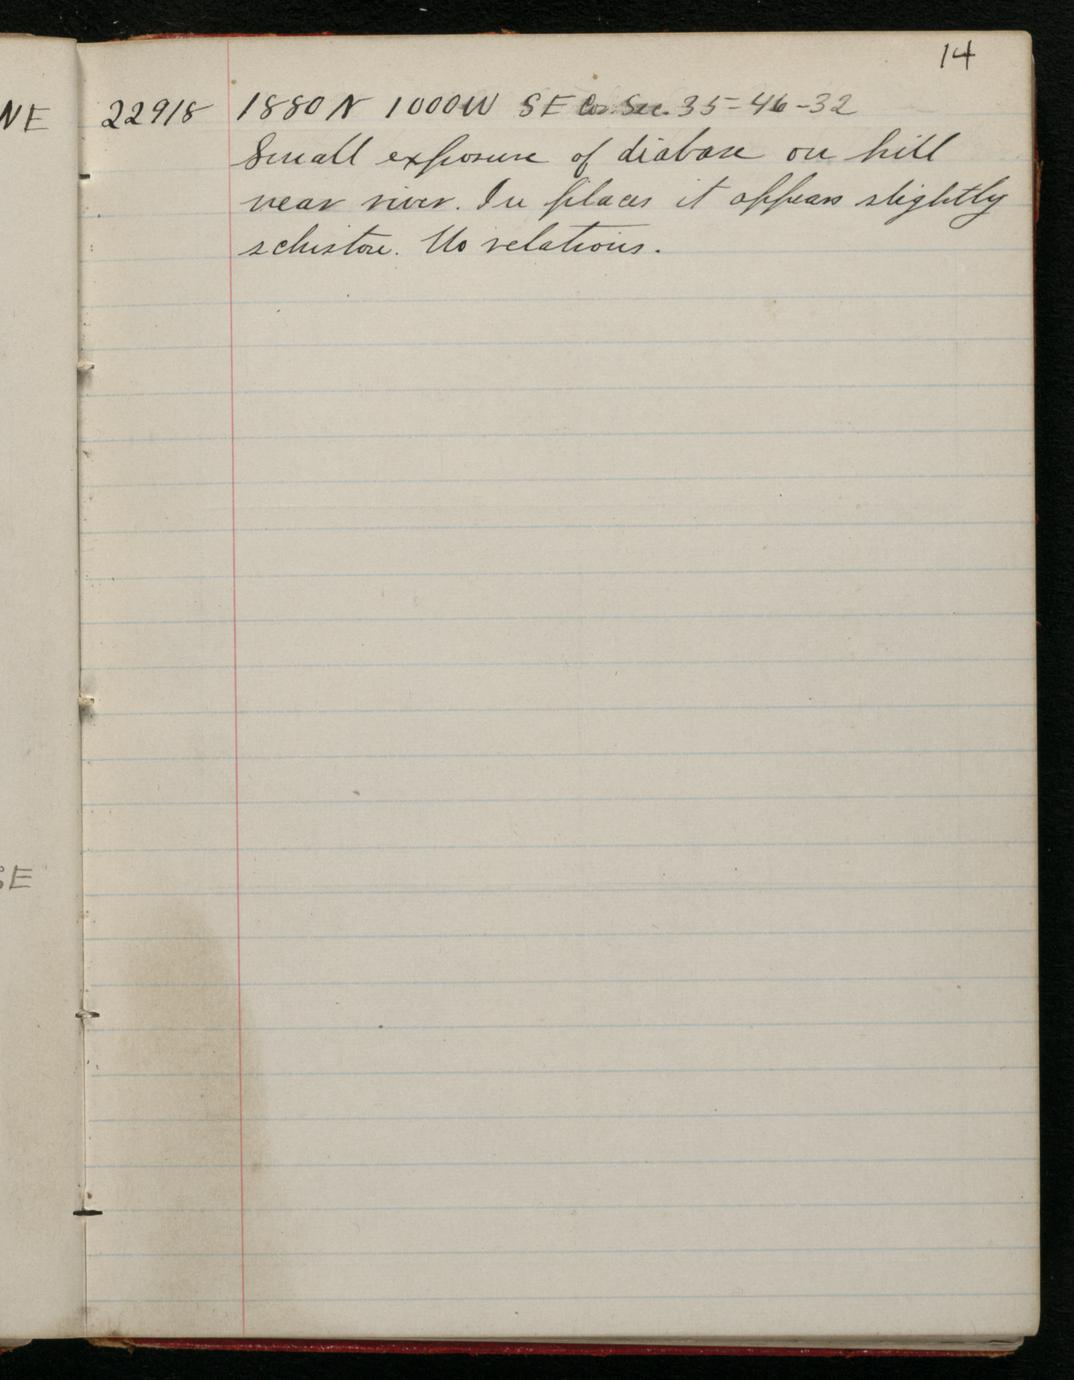 14
NE
22918 1880 N 1000 W SE Cor. Sec. 35-46-32
Small exposure of diabase on hill
near river. In places it appears slightly
schistose. No relations.
SE